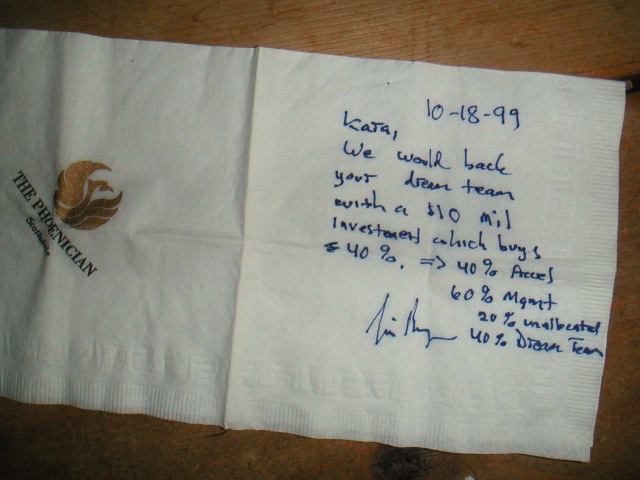 THE PHOENICIAN
Scottsdale
10-18-99
Kara,
We would back
your dream team
with a $10 mil
investment which buys
≈ 40%. => 40% Accel
60% Mgmt
20% unallocated
40% Dream Team